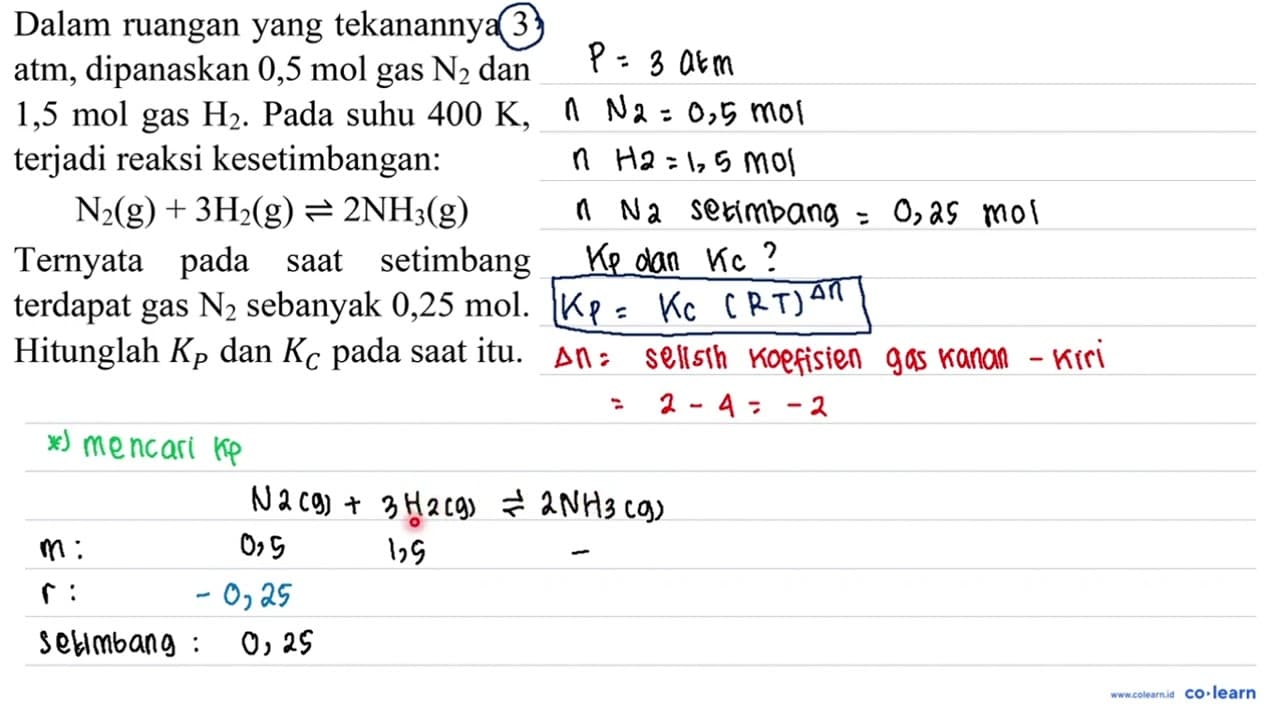 Dalam ruangan yang tekanannya 3
atm, dipanaskan 0,5 mol gas N₂ dan
1,5 mol gas H₂. Pada suhu 400 K,
terjadi reaksi kesetimbangan:
N₂(g) + 3H₂(g) ⇌ 2NH₃(g)
Ternyata pada saat setimbang
terdapat gas N₂ sebanyak 0,25 mol.
Hitunglah K_P dan K_C pada saat itu.
P = 3 atm
n N2 = 0,5 mol
n H2 = 1,5 mol
n N2 setimbang = 0,25 mol
Kp dan Kc ?
Kp = Kc (RT)^Δn
Δn = selisih koefisien gas kanan - kiri
= 2 - 4 = -2
*) mencari Kp
N2(g) + 3H2(g) ⇌ 2NH3(g)
m : 0,5 1,5 -
r : - 0,25
setimbang : 0,25
www.colearn.id co·learn